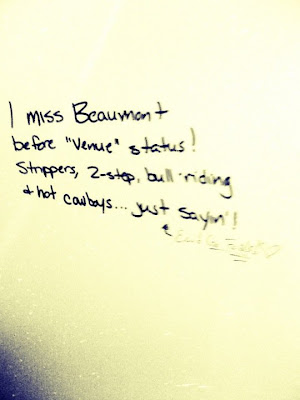 I miss Beaumont
before "Venue" status!
Strippers, 2-step, bull riding
& hot cowboys... just sayin'!